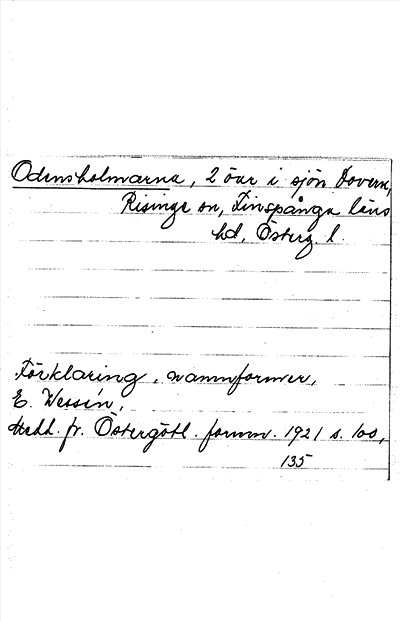 Odensholmarna, 2 öar i sjön Dovern,
Risinge sn, Finspånga läns
hd, Österg. l.
Förklaring, namnformer,
E. Wessén,
Medd. fr. Östergötl. fornm. 1921 s. 100,
135